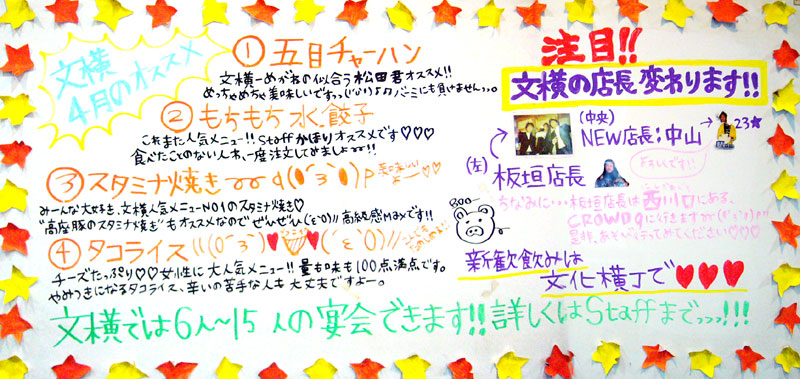 文横
4月のオススメ
① 五目チャーハン
文横一めがねの似合う松田君オススメ!!
めっちゃめちゃ美味しいですっ
② もちもち水餃子
これまた人気メニュー!! Staffかほりオススメです♡♡♡
食べたことのない人ゎ、一度注文してみましょー!!
③ スタミナ焼き
美味しい
みーんな大好き、文横人気メニューNO1のスタミナ焼き♡
"高座豚のスタミナ焼き"もオススメなのでぜひぜひ(´ε`o)// 高級感Maxです!!
④ タコライス
チーズたっぷり♡♡女性に大人気メニュー!! 量も味も100点満点です。
やみつきになるタコライス、辛いの苦手な人も大丈夫ですよー。
文横では6人〜15人の宴会できます!! 詳しくはStaffまでっっっ!!!
注目!!
文横の店長変わります!!
(中央)
NEW店長:中山
23☆
よろしくです!!
(左)
板垣店長
ちなみに…板垣店長は西川口にある、
CROWD9に行きますが
是非、あそびに行ってみてください♡♡♡
Boo
新歓飲みは
文化横丁で♥♥♥